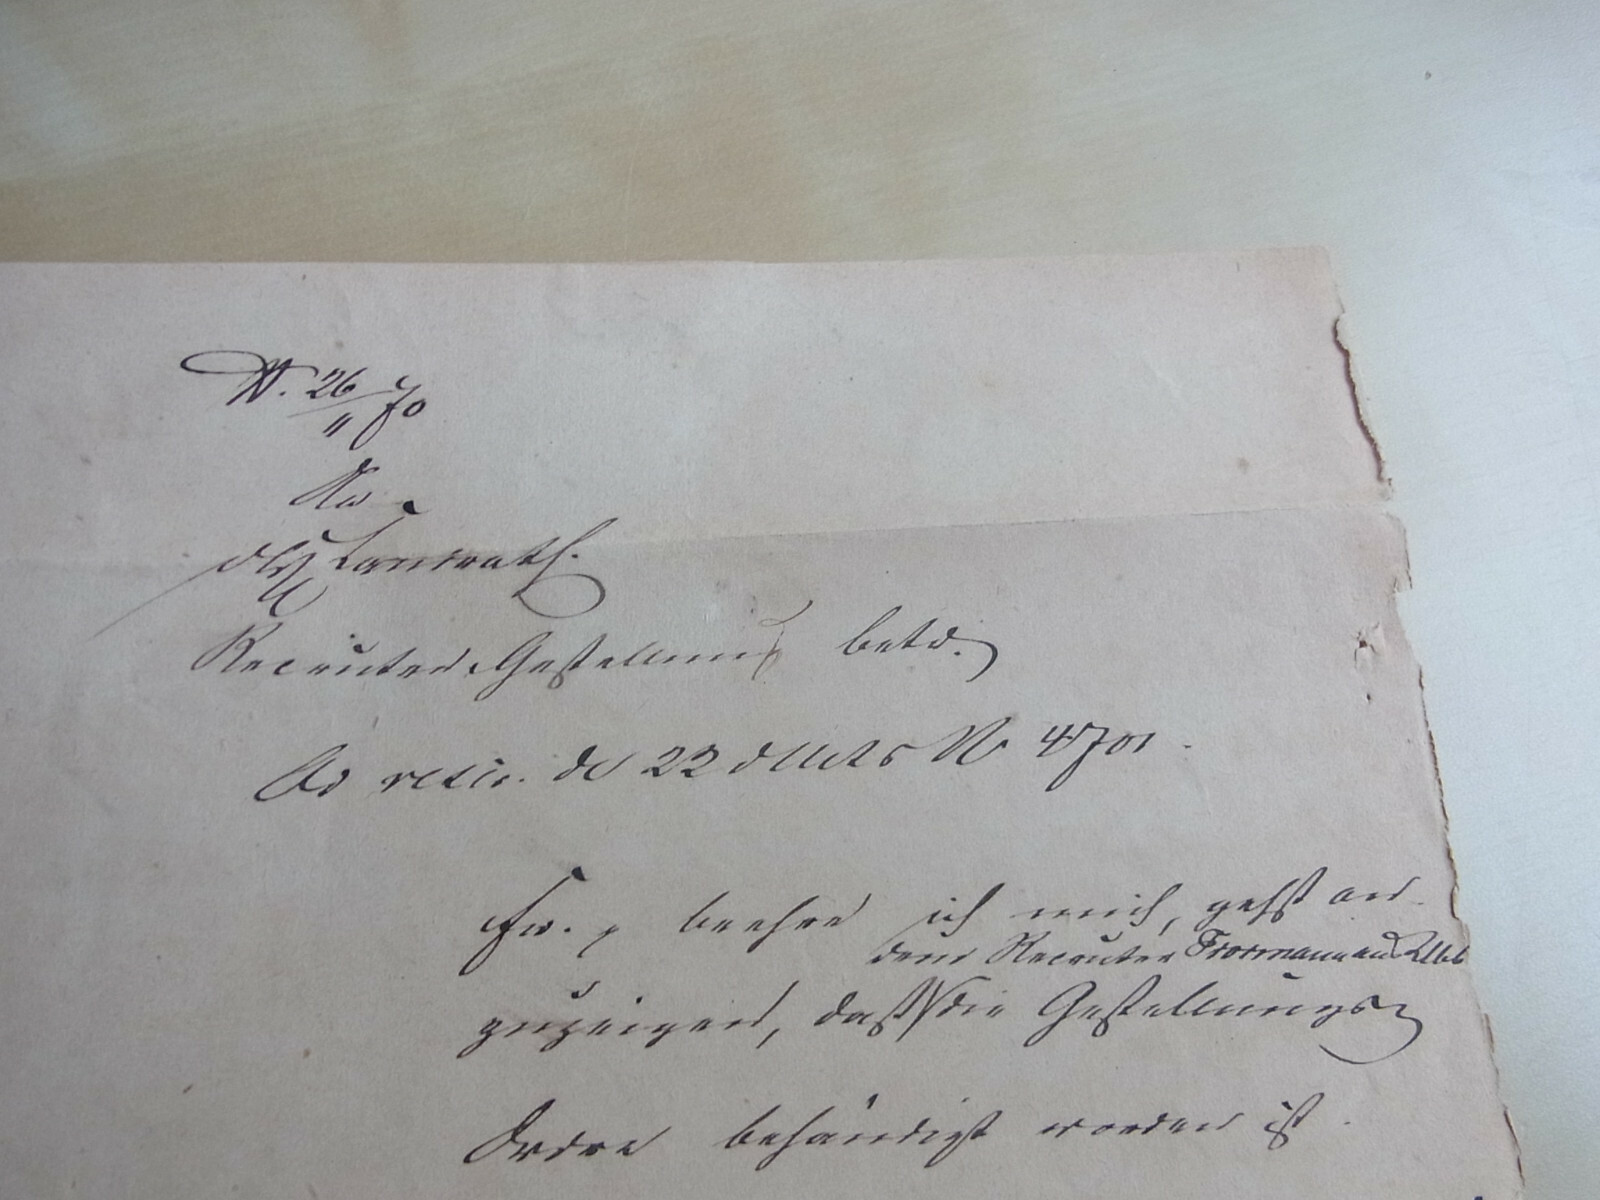 W. 26/11 70
An
d. Landrath.
Recruten Gestellung betr.
Ad rescr. de 22 d Mts No 4701.
Ew. p beehre ich mich, gehst an
dem Recruten Trormann aus
zuzeigen, daß die Gestellungs
Ordre behändigt worden ist.